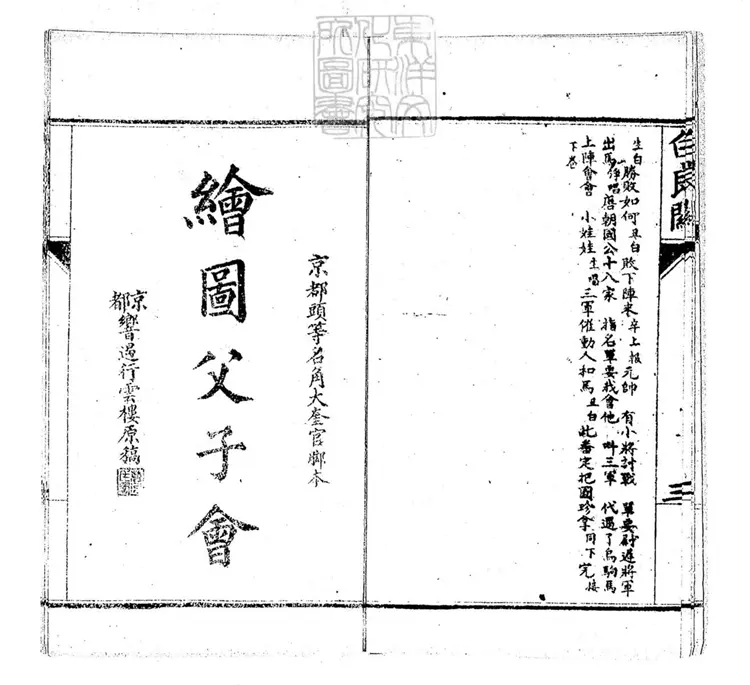 東洋文
化研究
所圖書
白良關
三
生白勝敗如何 丑白敗下陣來 卒上報元帥 有小將討戰 單要尉遲將軍
出馬 淨唱唐朝國公十八家 指名單要我會他 叫三軍 代過了烏駒馬
上陣會會 小娃娃 生唱三軍催動人和馬 丑白此番定把國珍拿 同下完 接
下卷
京都頭等名角大奎官腳本
繪圖父子會
京都響遏行雲樓原稿